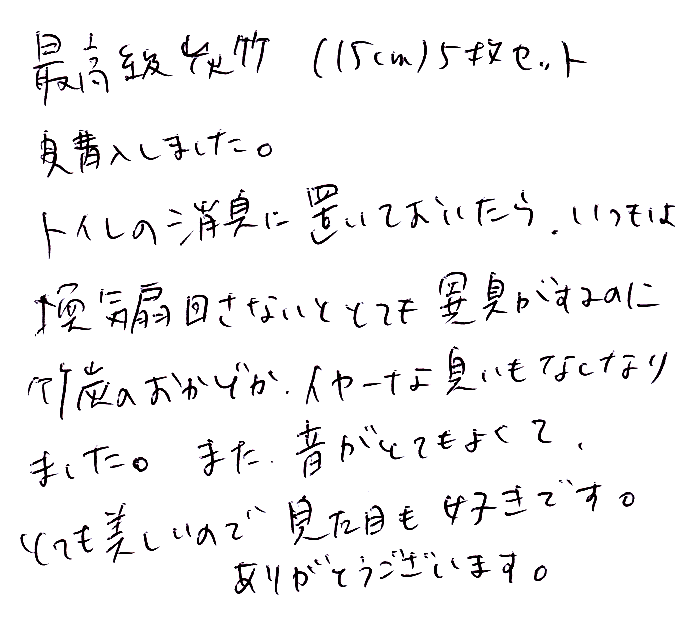 最高級炭竹 (15cm)5枚セット
購入しました。
トイレの消臭に置いておいたら、いつもは
換気扇回さないととても異臭がするのに
竹炭のおかげか、イヤーな臭いもなくなり
ました。また、音がとてもよくて、
とても美しいので見た目も好きです。
ありがとうございます。